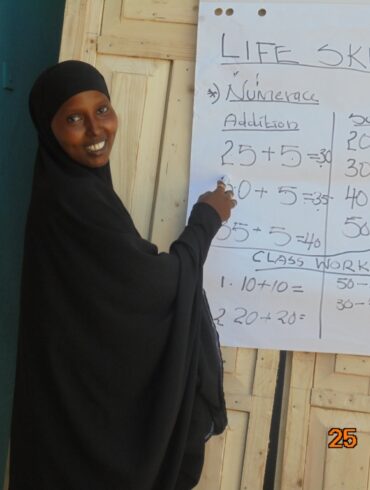 LIFE SK
Numerace
Addition
25+5=30
0+5=35
35+5=40
20
30
40
50
CLASS WORK
1. 10+10=
2 20+20=
50-
30-
25